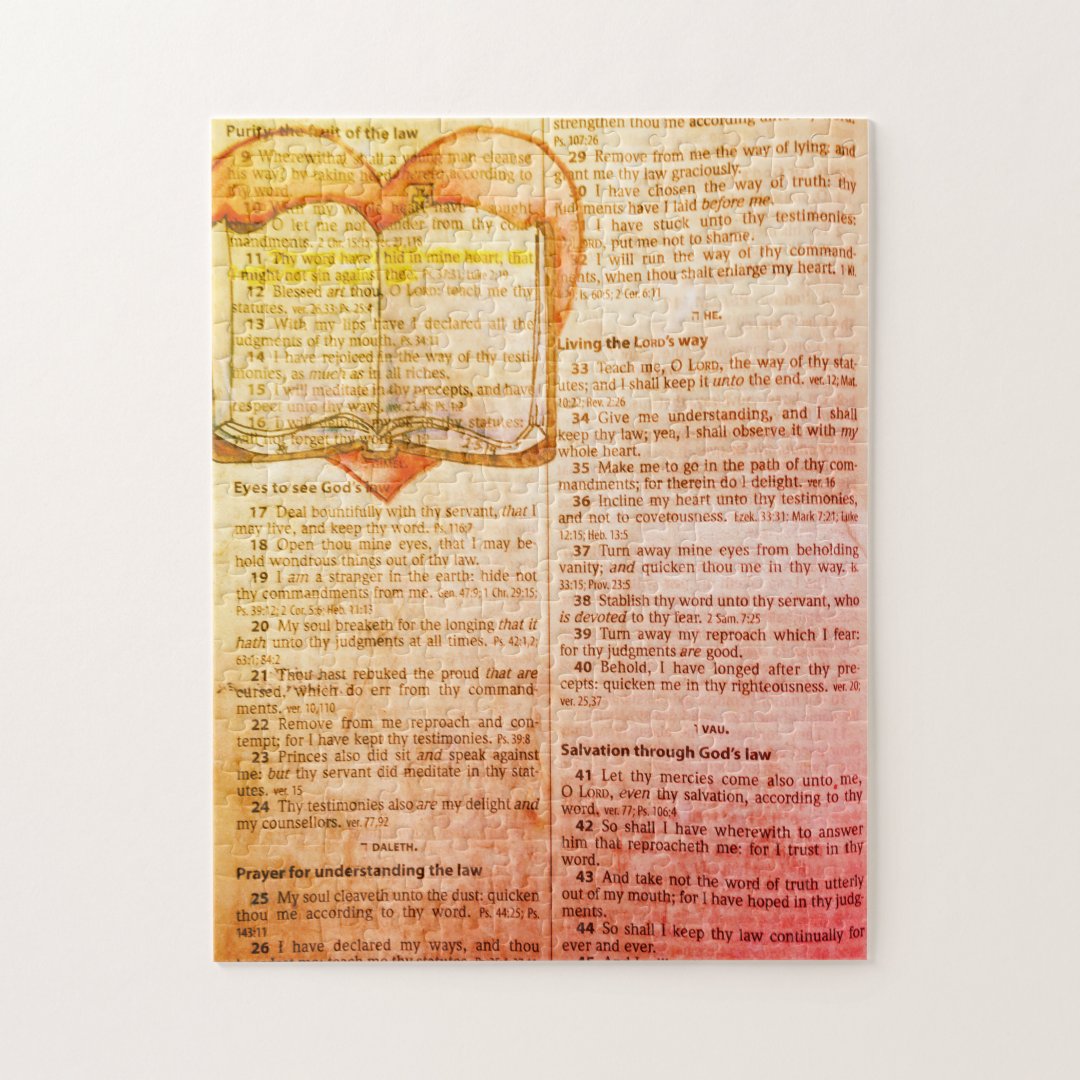 Purity, the fruit of the law
9 Wherewithal shall a young man cleanse
his way? by taking heed thereto according to
thy word.
10 With my whole heart have I sought
thee: O let me not wander from thy com-
mandments. 2 Chr. 15:15; ver. 21,118
11 Thy word have I hid in mine heart, that
I might not sin against thee. Ps. 37:31; Luke 2:19
12 Blessed art thou, O LORD: teach me thy
statutes. ver. 26,33; Ps. 25:4
13 With my lips have I declared all the
judgments of thy mouth. Ps. 34:11
14 I have rejoiced in the way of thy testi-
monies, as much as in all riches.
15 I will meditate in thy precepts, and have
respect unto thy ways.
16 I will delight myself in thy statutes: I
will not forget thy word.
GIMEL.
Eyes to see God's
17 Deal bountifully with thy servant, that I
may live, and keep thy word. Ps. 116:7
18 Open thou mine eyes, that I may be-
hold wondrous things out of thy law.
19 I am a stranger in the earth: hide not
thy commandments from me. Gen. 47:9; 1 Chr. 29:15;
Ps. 39:12; 2 Cor. 5:6; Heb. 11:13
20 My soul breaketh for the longing that it
hath unto thy judgments at all times. Ps. 42:1,2;
63:1; 84:2
21 Thou hast rebuked the proud that are
cursed, which do err from thy command-
ments. ver. 10,110
22 Remove from me reproach and con-
tempt; for I have kept thy testimonies. Ps. 39:8
23 Princes also did sit and speak against
me: but thy servant did meditate in thy stat-
utes. ver. 15
24 Thy testimonies also are my delight and
my counsellors. ver. 77,92
ד DALETH.
Prayer for understanding the law
25 My soul cleaveth unto the dust: quicken
thou me according to thy word. Ps. 44:25; Ps.
143:11
26 I have declared my ways, and thou
teach me thy statutes.
strengthen thou me according unto
Ps. 107:26
29 Remove from me the way of lying: and
grant me thy law graciously.
30 I have chosen the way of truth: thy
judgments have I laid before me.
I have stuck unto thy testimonies:
LORD, put me not to shame.
I will run the way of thy command-
ments, when thou shalt enlarge my heart. 1 Ki.
Is. 60:5; 2 Cor. 6:11
ה HE.
Living the LORD's way
33 Teach me, O LORD, the way of thy stat-
utes; and I shall keep it unto the end. ver. 12; Mat.
10:22; Rev. 2:26
34 Give me understanding, and I shall
keep thy law; yea, I shall observe it with my
whole heart.
35 Make me to go in the path of thy com-
mandments; for therein do I delight. ver. 16
36 Incline my heart unto thy testimonies,
and not to covetousness. Ezek. 33:31; Mark 7:21; Luke
12:15; Heb. 13:5
37 Turn away mine eyes from beholding
vanity; and quicken thou me in thy way. Is.
33:15; Prov. 23:5
38 Stablish thy word unto thy servant, who
is devoted to thy fear. 2 Sam. 7:25
39 Turn away my reproach which I fear:
for thy judgments are good.
40 Behold, I have longed after thy pre-
cepts: quicken me in thy righteousness. ver. 20;
ver. 25,37
ו VAU.
Salvation through God's law
41 Let thy mercies come also unto me,
O LORD, even thy salvation, according to thy
word. ver. 77; Ps. 106:4
42 So shall I have wherewith to answer
him that reproacheth me: for I trust in thy
word.
43 And take not the word of truth utterly
out of my mouth; for I have hoped in thy judg-
ments.
44 So shall I keep thy law continually for
ever and ever.
45 And I